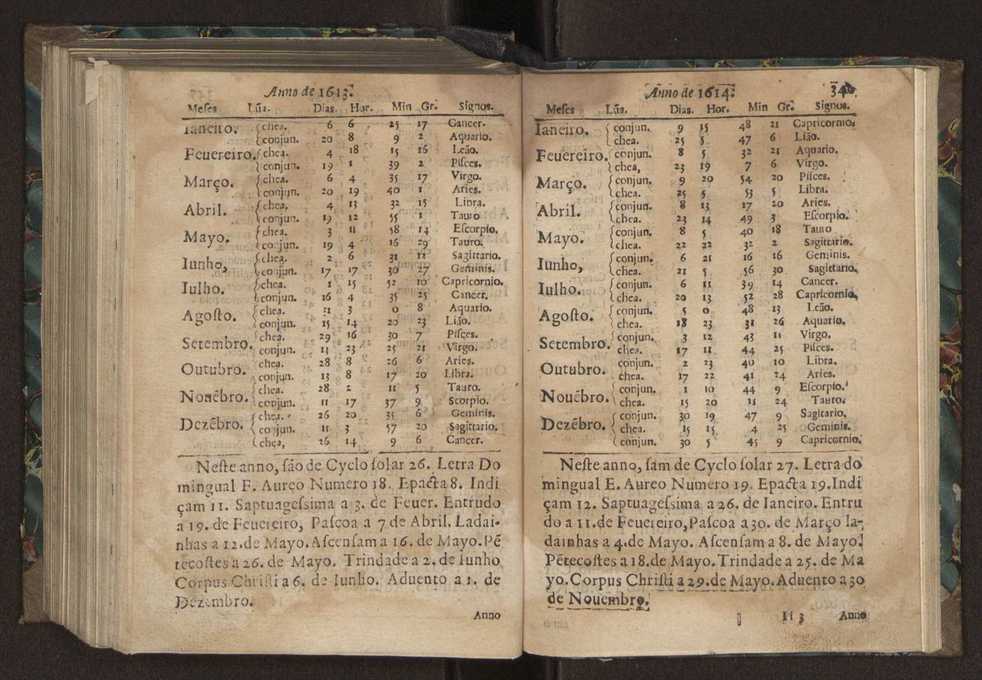 Anno de 1613.
Meses Lũa. Dias. Hor. Min Gr. Signos.
Ianeiro. chea. 6 6 25 17 Cancer.
conjun. 20 8 9 2 Aquario.
Feuereiro. chea. 4 18 15 16 Leão.
conjun. 19 1 39 2 Pisces.
Março. chea. 6 4 35 17 Virgo.
conjun. 20 19 40 1 Aries.
Abril. chea, 4 13 32 15 Libra.
conjun. 19 12 55 1 Tauro
Mayo. chea. 3 11 58 14 Escorpio,
conjun. 19 4 16 29 Tauro.
Iunho, chea. 2 6 31 11 Sagittario.
conjun. 17 17 30 27 Geminis.
Iulho. chea. 1 15 52 10 Capricornio.
conjun. 16 4 35 25 Cancer.
Agosto. chea. 31 3 0 8 Aquario.
conjun. 15 14 20 23 Lião.
Setembro. chea. 29 16 30 7 Pisces.
conjun. 13 23 21 Virgo.
Outubro. chea. 28 8 26 6 Aries.
conjun. 13 8 17 20 Libra.
Nouẽbro. chea. 28 2 11 5 Tauro.
conjun. 11 17 37 9 Scorpio.
Dezẽbro. chea. 26 20 35 6 Geminis.
conjun. 11 3 57 20 Sagittario.
chea, 26 14 9 6 Cancer.
Neste anno, são de Cyclo solar 26. Letra Do
mingual F. Aureo Numero 18. Epacta 8. Indi
çam 11. Saptuagessima a 3. de Feuer. Entrudo
a 19. de Feuereiro, Pascoa a 7 de Abril. Ladai-
nhas a 12. de Mayo. Ascensam a 16. de Mayo. Pẽ
tecostes a 26. de Mayo. Trindade a 2. de Iunho
Corpus Christi a 6. de Iunho. Aduento a 1. de
Dezembro.
Anno
Anno de 1614.
Meses Lũa. Dias. Hor. Min Gr. Signos.
Ianeiro. conjun. 9 15 48 21 Capricornio.
chea. 25 5 47 6 Lião.
Feuereiro. conjun. 8 5 32 21 Aquario.
chea, 23 19 7 6 Virgo.
Março. conjun. 9 20 54 20 Pisces.
chea. 25 5 53 5 Libra.
Abril. conjun. 8 13 17 20 Aries.
chea. 23 14 49 3 Escorpio.
Mayo. conjun. 8 5 40 18 Tauro
chea. 22 22 32 2 Sagittario.
Iunho, conjun. 6 21 16 16 Geminis.
chea. 21 5 56 30 Sagittario,
Iulho. conjun. 6 11 39 14 Cancer.
chea. 20 13 52 28 Capricornio,
Agosto. conjun. 5 0 48 13 Leão.
chea. 18 23 31 26 Aquario.
Setembro. conjun. 3 12 43 11 Virgo.
chea. 17 11 44 25 Pisces.
Outubro. conjun. 2 23 40 10 Libra.
chea. 17 22 41 24 Aries.
Nouẽbro. conjun. 1 10 44 9 Escorpio.
chea. 15 20 11 24 Tauro.
Dezẽbro. conjun. 30 19 47 9 Sagitario,
chea. 15 15 4 25 Geminis.
conjun. 30 5 45 9 Capricornio.
Neste anno, sam de Cyclo solar 27. Letra do
mingual E. Aureo Numero 19. Epacta 19. Indi
çam 12. Saptuagessima a 26. de Ianeiro. Entru
do a 11. de Feuereiro, Pascoa a 30. de Março la-
dainhas a 4. de Mayo. Ascensam a 8. de Mayo.
Pẽtecostes a 18. de Mayo. Trindade a 25. de Ma
yo. Corpus Christi a 29. de Mayo. Aduento a 30
de Nouembro.
Ii 3 Anno